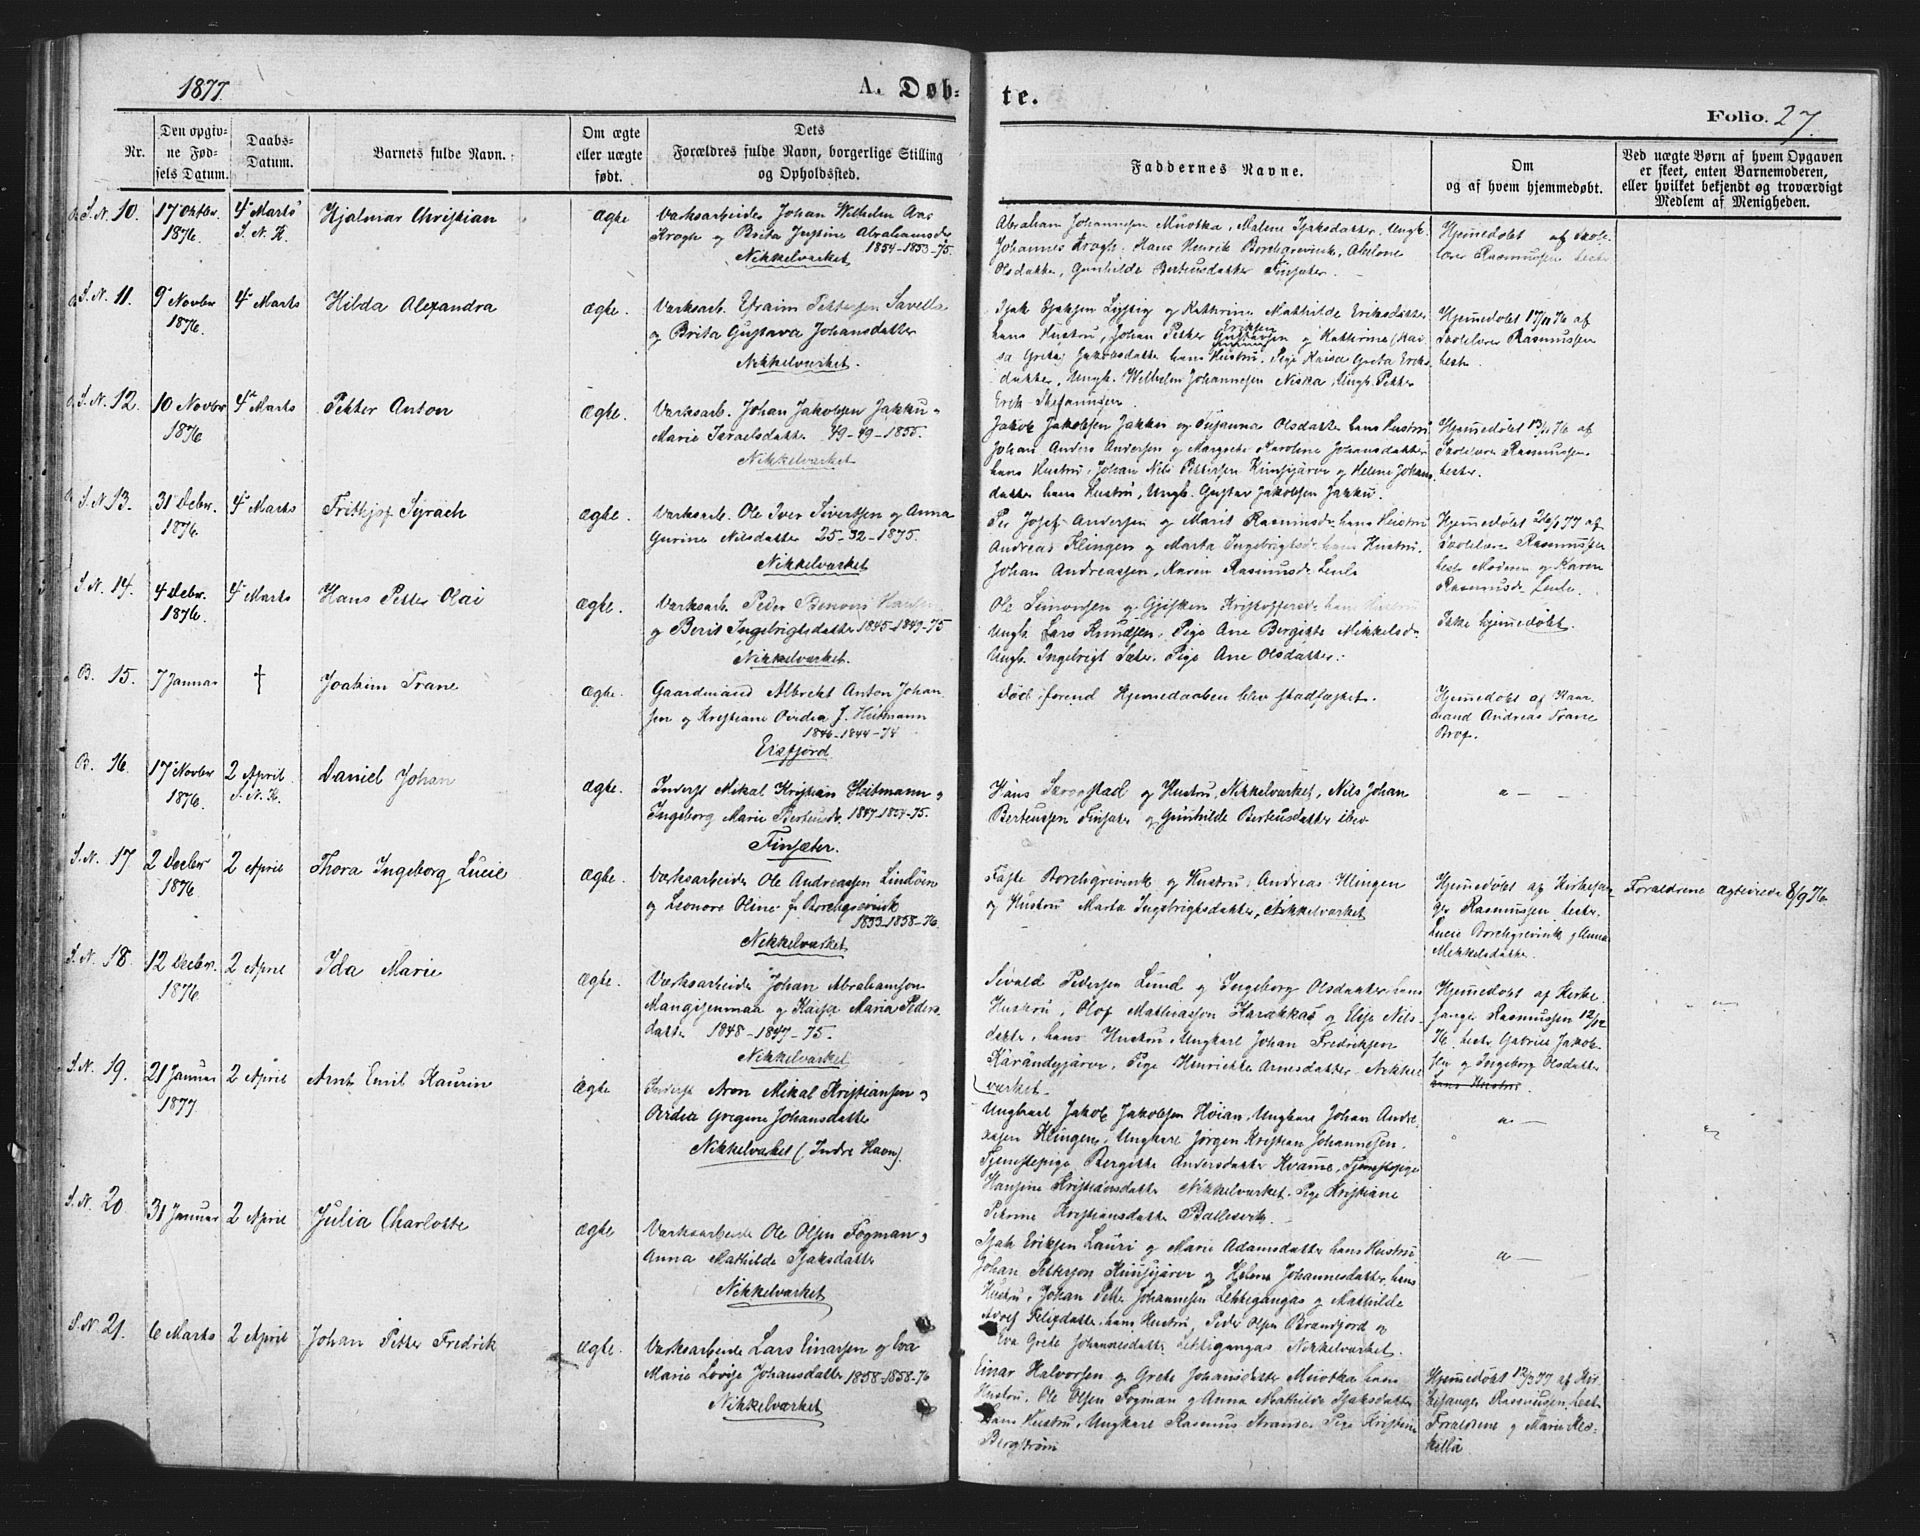 1877.
A. Døb-
te.
Folio. 27.
Nr.
Den opgiv-
ne Fød-
sels Datum.
Daabs-
Datum.
Barnets fulde Navn.
Om ægte
eller uægte
født.
Dets
Forældres fulde Navn, borgerlige Stilling
og Opholdssted.
Faddernes Navne.
Om
og af hvem hjemmedøbt.
Ved uægte Børn af hvem Opgaven
er skeet, enten Barnemoderen,
eller hvilket bekjendt og troværdigt
Medlem af Menigheden.
S. N. 10.
17 Oktbr
1876.
4 Marts
S. N. K.
Hjalmar Christian
Ægte
Værksarbeider Johan Wilhelm Aas
Krogh og Brita Justine Abrahamsdr
1854-1853-75.
Nikkelværket
Abraham Johannesen Muotka, Malene Isaksdatter, Ungk.
Johannes Krogh, Hans Henrik Borchgrevink, Abelone
Olsdatter, Gunhilde Berteusdatter Finsæter.
Hjemedøbt af Skole-
lærer Rasmussen
S. N. 11.
9 Novbr
1876
4 Marts
Hilda Alexandra
Ægte.
Værksarb. Efraim Pettersen Savella
og Brita Gustava Johansdatter
Nikkelværket.
Isak Isaksen og Kathrine Mathilde Eriksdatter
hans Hustru, Johan Petter Eriksen og Kathrine (Kai-
sa Greta) Jakobsdatter hans Hustru, Pige Kaisa Greta Eriks-
datter, Ungk. Wilhelm Johannesen Niska, Ungk. Petter
Erik Stefannsen
Hjemedøbt 17/11 76 af
Skolelærer Rasmussen
S. N. 12.
10 Novbr
1876
4 Marts
Petter Anton
Ægte.
Værksarb. Johan Jakobsen Jakku
Marie Israelsdatter 49-49-1855.
Nikkelværket
Jakob Jakobsen Jakku og Susanna Olsdatter hans Hustru
Johan Anders Andersen og Margrete Karoline Johansdatter
hans Hustru, Johan Nils Pettersen Kinisjärvi og Helene Johans
datter hans Hustru, Ungk. Gustav Jakobsen Jakku.
Hjemedøbt 13/11 76 af
Skolelærer Rasmussen
S. N. 13.
31 Decbr.
1876.
4 Marts
Frithjof Syrach
Ægte.
Værksarb. Ole Iver Sivertsen og Anna
Gurine Nilsdatter 25-32-1875.
Nikkelværket
Per Josef Andersen og Marit Rasmusdr hans Hustru
Andreas Klingen og Marta Ingebrigtsdr hans Hustru.
Johan Andreassen, Maren Rasmusdr
Hjemedøbt 26/1 77 af
Skolelærer Rasmussen
Moderen og Karen
Rasmusdr
S. N. 14.
4 Decbr.
1876.
4 Marts
Hans Petter Olai
Ægte.
Værksarb. Peder Hansen
og Berit Ingebrigtsdatter 1845-1849-75
Nikkelværket.
Ole Simonsen og Kristoffersdr hans Hustru
Ungk. Lars Knudsen, Pige Ane Bergitte Mikkelsdr.
Ungk. Ingebrigt Sæter. Pige Ane Olsdatter.
Ikke hjemedøbt.
B. 15.
7 Januar
†
Joakim Trane
Ægte.
Gaardmand Albrekt Anton Johan
sen og Kristiane Ovidia J. Heitmann
1846-1844-74
Eidsfjord
Død forend Hjemedaaben blev stadfæstet.
Hjemedøbt af Kaar
mand Andreas Trane
B. 16.
17 Novbr
1876.
2 April
S. N. K.
Daniel Johan
Ægte.
Inderst Mikal Kristian Heitmann og
Ingeborg Marie Berteusdr. 1847-1854-75.
Finsæter.
Hans og Hustru, Nikkelværket, Nils Johan
Berteussen Finsæter og Gunhilde Berteusdatter ibid
S. N. 17.
2 Decbr
1876.
2 April
Thora Ingeborg Lucie
Ægte.
Værksarbeider Ole Andreassen Lindøen
og Leonore Oline f. Borchgrevink
1853-1858-76.
Nikkelværket
Borchgrevink og Hustru, Andreas Klingen
og Hustru Marta Ingebrigtsdatter, Nikkelværket
Hjemedøbt af Kirkesan
ger Rasmussen
Lucie Borchgrevink
Mikkelsdatter.
Forældrene ægteviede 8/9 76.
S. N. 18.
12 Decbr.
1876
2 April
Ida Marie
Ægte.
Værksarbeider Johan Abrahamsen
og Kaisa Maria Peders
datter 1848-1847-75.
Nikkelværket
Sivald Pedersen Lund og Ingeborg Olsdatter hans
Hustru, Olof Mathiassen og Else Nils-
datter, hans Hustru, Ungkarl Johan Fredriksen
Pige Henriette Arnesdatter, Nikkel
værket.
Hjemedøbt af Kirke-
sanger Rasmussen 12/12
76, Gabriel Jakob-
sen og Ingeborg Olsdatter
hans Hustru.
S. N. 19.
21 Januar
1877
2 April
Arnt Emil Kaurin
Ægte
Inderst Aron Mikal Kristiansen og
Ovidia Gregine Johansdatter
Nikkelværket (Indre Havn).
Ungkarl Jakob Jakobsen Høian, Ungkarl Johan Andre
assen Klingen, Ungkarl Jørgen Kristian Johannesen.
Tjenestepige Bergitte Andersdatter Kvame, Tjenestepige
Hansine Kristiansdatter Nikkelværket. Pige Kristiane
Petrine Kristiansdatter Ballesvik.
S. N. 20
31 Januar
2 April
Julia Charlotte
Ægte
Værksarbeider Ole Olsen Fogman og
Anna Mathilde Isaksdatter
Nikkelværket
Isak Eriksen Lauri og Marie Adamsdatter hans Hustru
Johan Pettersen og Helena Johannesdatter, hans
Hustru, Johan Petter Johannesen og Mathilde
Adolf Felixdatter, hans Hustru, Peder Olsen Brandfjord og
Eva Grete Johannesdatter Nikkelværket.
S. N. 21.
6 Marts
2 April
Johan Petter Fredrik
Ægte.
Værksarbeider Lars Einarsen og Eva
Marie Lovise Johansdatter 1858-1858-76
Nikkelværket
Einar Halvorsen og Grete Johansdatter Muotka hans
Hustru, Ole Olsen Fogman og Anna Mathilde Isaksdatter
hans Hustru, Ungkarl Rasmus Pige Kristine
Bergstrøm
Hjemedøbt 12/3 77 af Kir
kesanger Rasmussen,
Forældrene og Marie